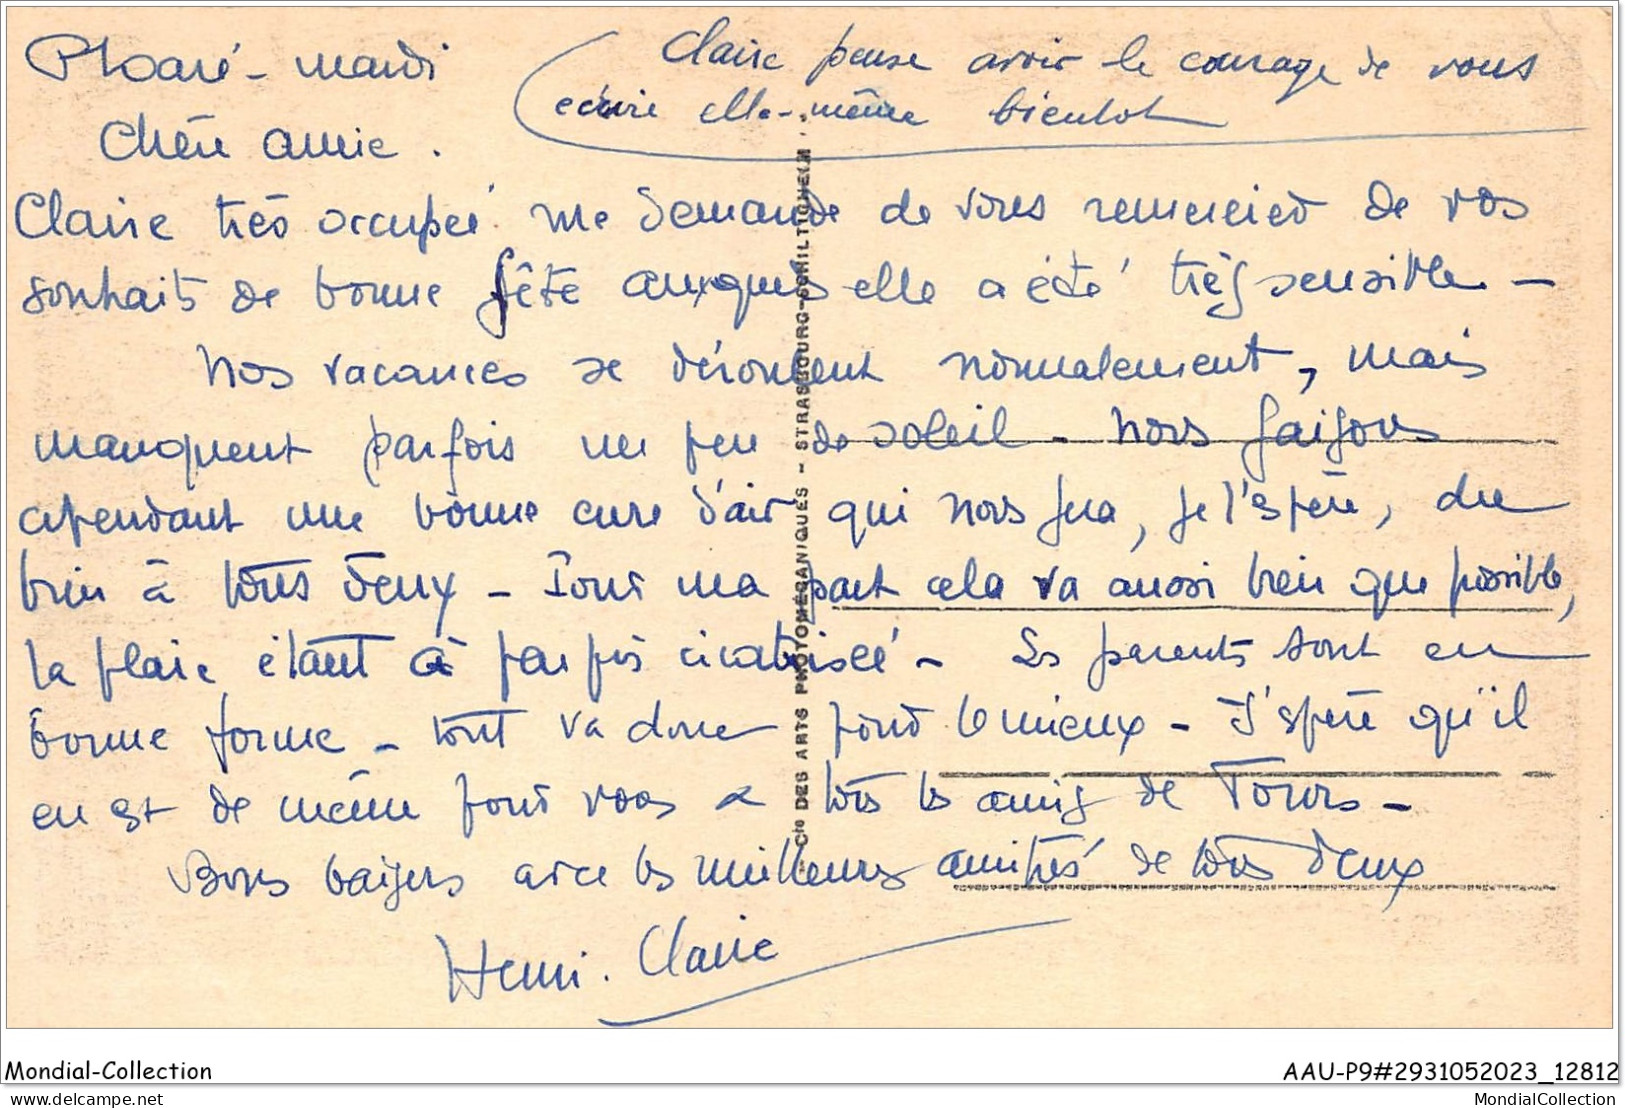 Ploaré - mardi
Claire pense avoir le courage de vous
écrire elle-même bientôt
Chère amie.
Claire très occupée me demande de vous remercier de vos
souhaits de bonne fête auxquels elle a été très sensible -
Nos vacances se déroulent normalement, mais
manquent parfois un peu de soleil - Nous faisons
cependant une bonne cure d'air qui nous fera, je l'espère, du
bien à tous deux - Pour ma part cela va aussi bien que possible,
la plaie étant à peu près cicatrisée - Les parents sont en
bonne forme - tout va donc pour le mieux - J'espère qu'il
en est de même pour vous et tous les amis de Tours -
Bons baisers avec les meilleures amitiés de tous deux
Henri. Claire
Cie DES ARTS PHOTOMÉCANIQUES - STRASBOURG-SCHILTIGHEIM
Mondial-Collection
AAU-P9#2931052023_12812
delcampe.net
MondialCollection